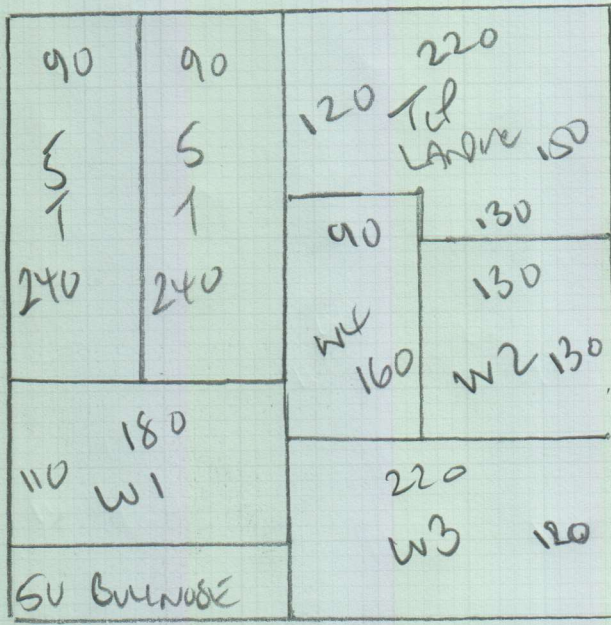 90
S
T
240
90
S
T
240
220
120
LANDING 150
130
90
W4
160
130
W2 130
180
110 W1
220
W3 120
BULLNOSE